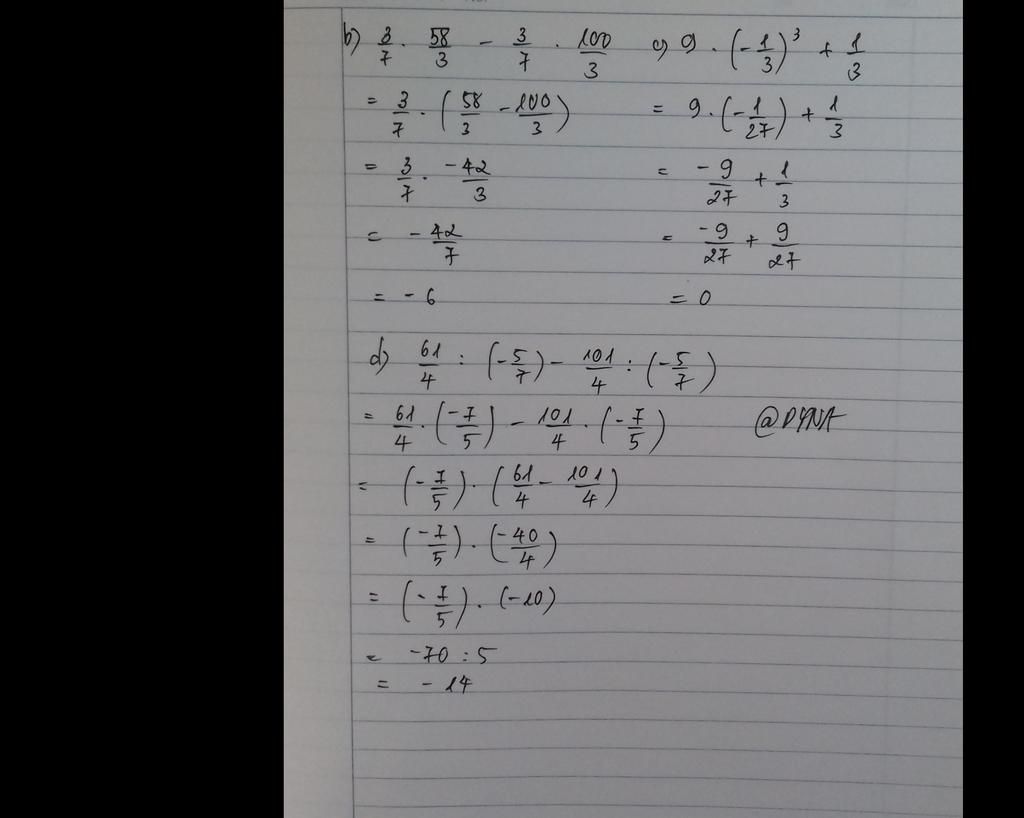 b) 3/7 . 58/3 - 3/7 . 100/3
= 3/7 . (58/3 - 100/3)
= 3/7 . -42/3
= -42/7
= -6
c) 9 . (-1/3)^3 + 1/3
= 9 . (-1/27) + 1/3
= -9/27 + 1/3
= -9/27 + 9/27
= 0
d) 61/4 : (-5/7) - 101/4 : (-5/7)
= 61/4 . (-7/5) - 101/4 . (-7/5)
@DYNA
= (-7/5) . (61/4 - 101/4)
= (-7/5) . (-40/4)
= (-7/5) . (-10)
= -70 : 5
= -14